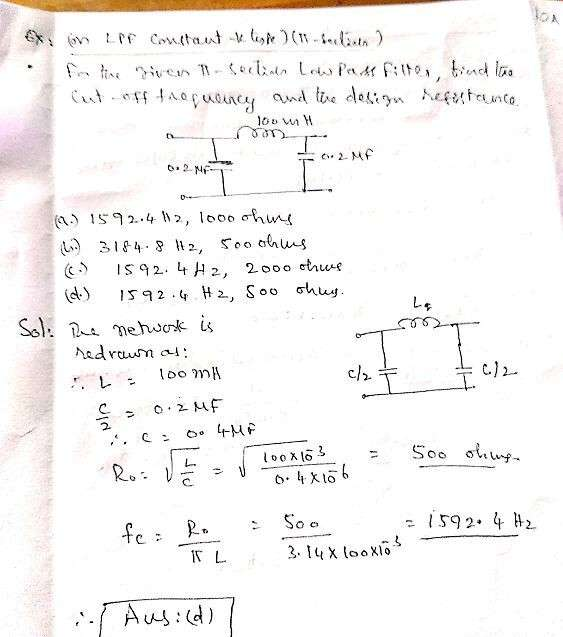 Ex: on LPF constant-k type) (π-section)
For the given π-section Low Pass Filter, find the
cut-off frequency and the design resistance
100 mH
0.2 MF
0.2 MF
(a.) 1592.4 Hz, 1000 ohms
(b.) 3184.8 Hz, 500 ohms
(c.) 1592.4 Hz, 2000 ohms
(d.) 1592.4 Hz, 500 ohms.
Sol: The network is
redrawn as:
C/2
C/2
∴ L = 100 mH
C/2 = 0.2 MF
∴ C = 0.4 MF
R₀ = √(L/C) = √(100×10⁻³ / 0.4×10⁻⁶) = 500 ohms.
fc = R₀ / π L = 500 / 3.14 × 100×10⁻³ = 1592.4 Hz
∴ Ans: (d)